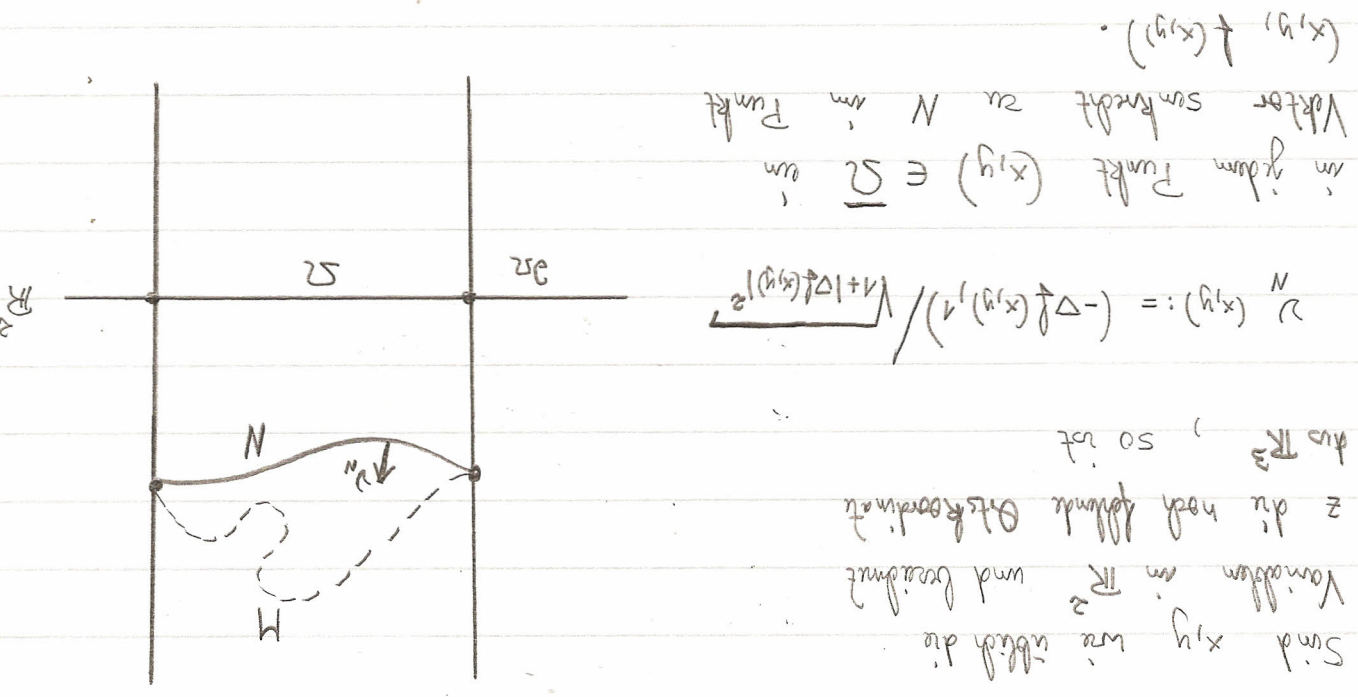 Sind x,y wie üblich die
Variablen in ℝ² und bezeichnet
z die noch fehlende Ortskoordinate
aus ℝ³, so ist
ν_N (x,y) := (-∇f(x,y),1)/√1+|∇f(x,y)|²
in jedem Punkt (x,y) ∈ Ω̅ ein
Vektor senkrecht zu N im Punkt
(x,y, f(x,y)).
M
ν_N
N
ℝ²
Ω
∂Ω